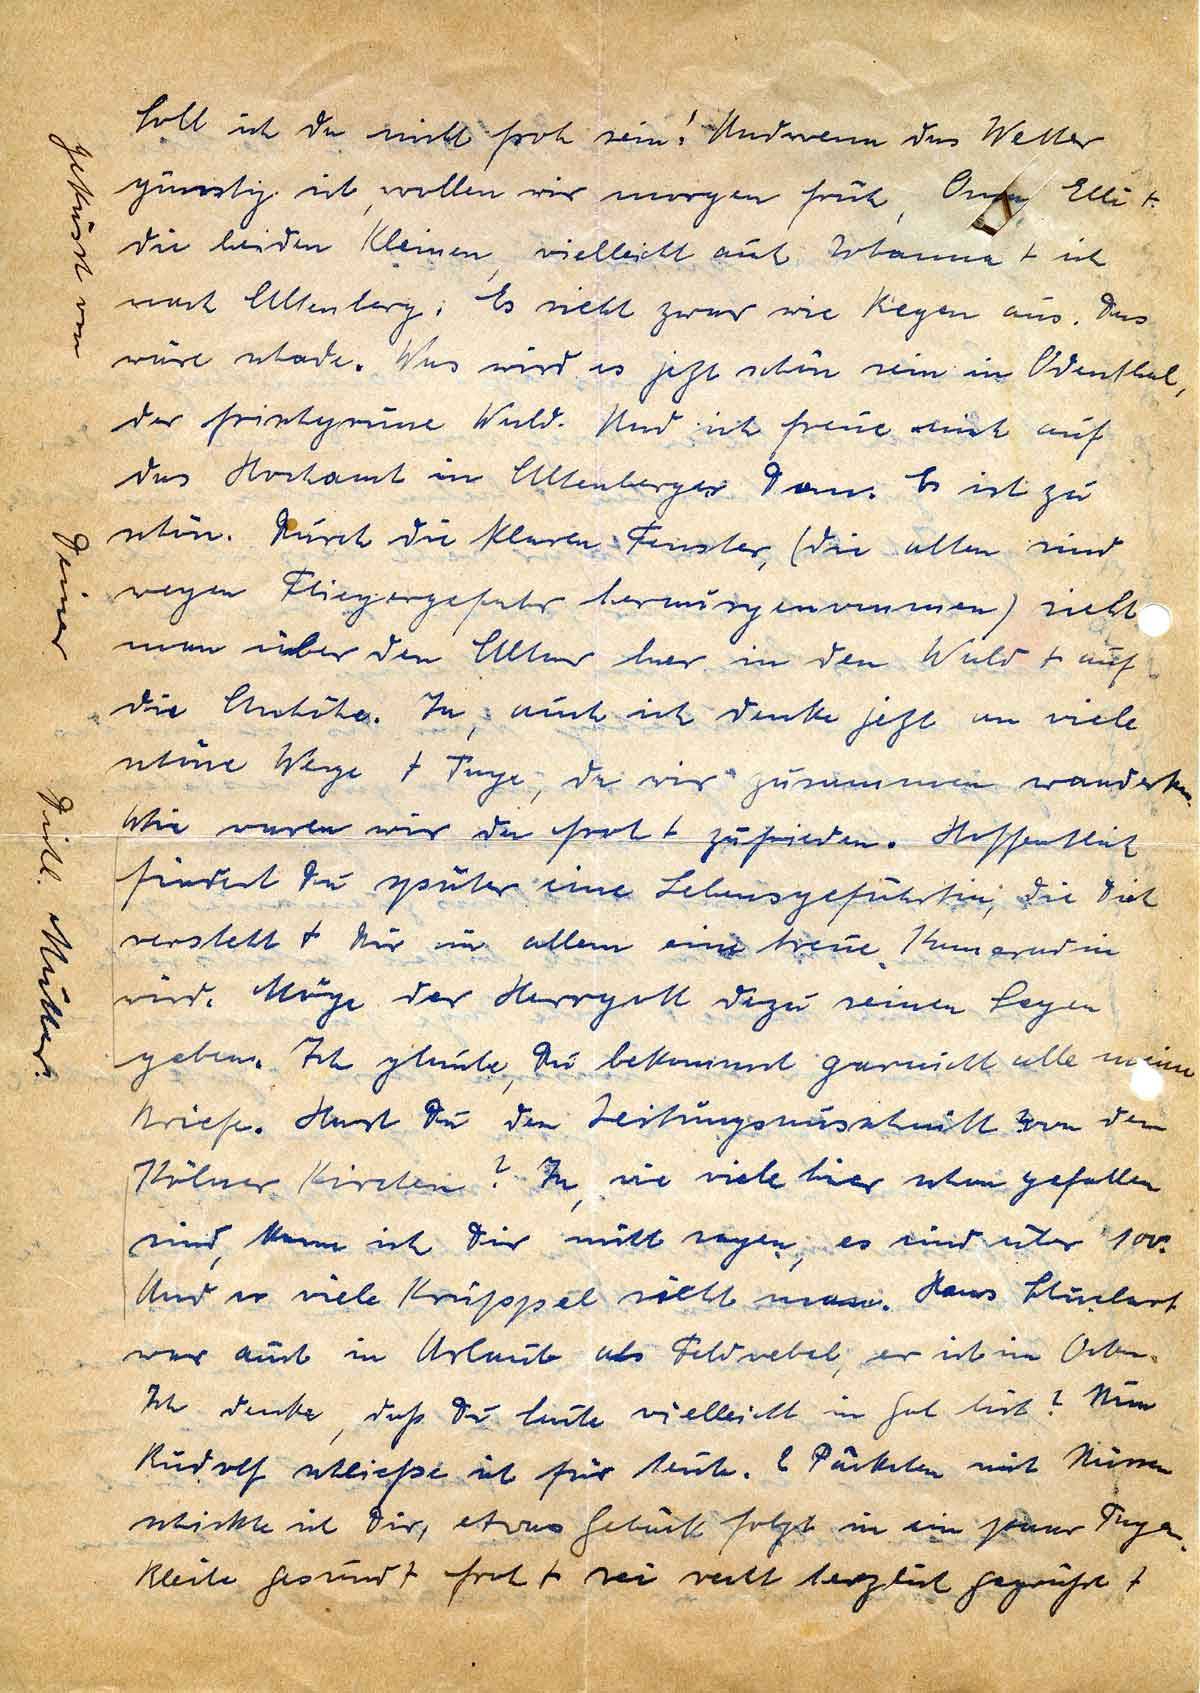 Soll ich da nicht froh sein! Und wenn das Wetter
günstig ist, wollen wir morgen früh, Elli +
die beiden Kleinen, vielleicht auch Johanna + ich
nach Altenberg. Es sieht zwar wie Regen aus. Das
wäre schade. Was wird es jetzt schön sein in Odenthal,
der frischgrüne Wald. Und ich freue mich auf
das Hochamt im Altenberger Dom. Es ist zu
schön. Durch die klaren Fenster, (die alten sind
wegen Fliegergefahr herausgenommen) sieht
man über den Altar her in den Wald + auf
die Anhöhe. Ja, auch ich denke jetzt an viele
schöne Wege + Tage, da wir zusammen wanderten.
Wie waren wir da froh + zufrieden. Hoffentlich
findest Du später eine Lebensgefährtin, die Dich
versteht + Dir in allem eine treue Kameradin
wird. Möge der Herrgott dazu seinen Segen
geben. Ich glaube, Du bekommst garnicht alle meine
Briefe. Hast Du den Zeitungsausschnitt von den
Kölner Kirchen? Ja, wie viele hier schon gefallen
sind, kann ich Dir nicht sagen, es sind über 100.
Und so viele Krüppel sieht man. Hans
war auch in Urlaub als Feldwebel, er ist im Osten.
Ich denke, daß Du heute vielleicht in bist? Nun
Rudolf schließe ich für heute. 2 Päckchen mit Nüssen
schickte ich Dir, etwas Gebäck folgt in ein paar Tagen.
Bleibe gesund + froh + sei recht herzlich gegrüßt +
geküsst von Deiner Mutter.